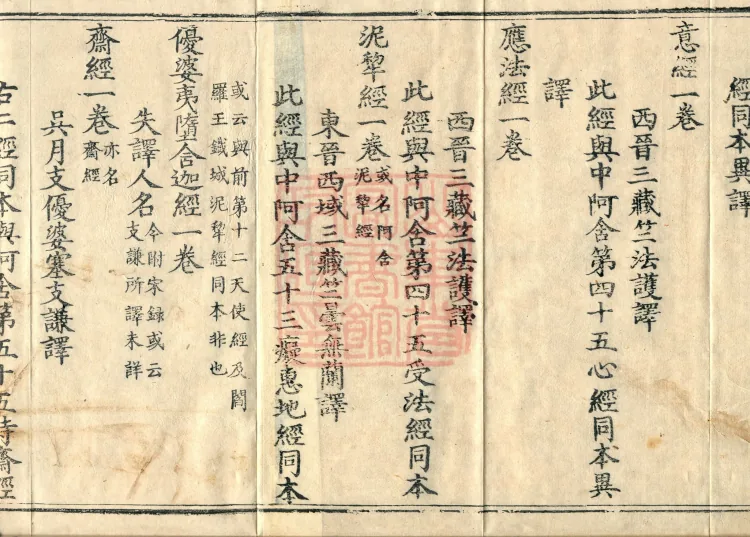 經同本異譯
意經一卷
西晉三藏竺法護譯
此經與中阿含第四十五心經同本異
譯
應法經一卷
西晉三藏竺法護譯
此經與中阿含第四十五受法經同本
泥犂經一卷
或名阿含
泥犂經
東晉西域三藏竺曇無蘭譯
此經與中阿含五十三癡惠地經同本
或云與前第十二天使經及閻
羅王鐵城泥犂經同本非也
優婆夷墮舍迦經一卷
失譯人名
今附宋録或云
支謙所譯未詳
齋經一卷
亦名
齋經
吳月支優婆塞支謙譯
右二經同本與阿含第五十五持齋經